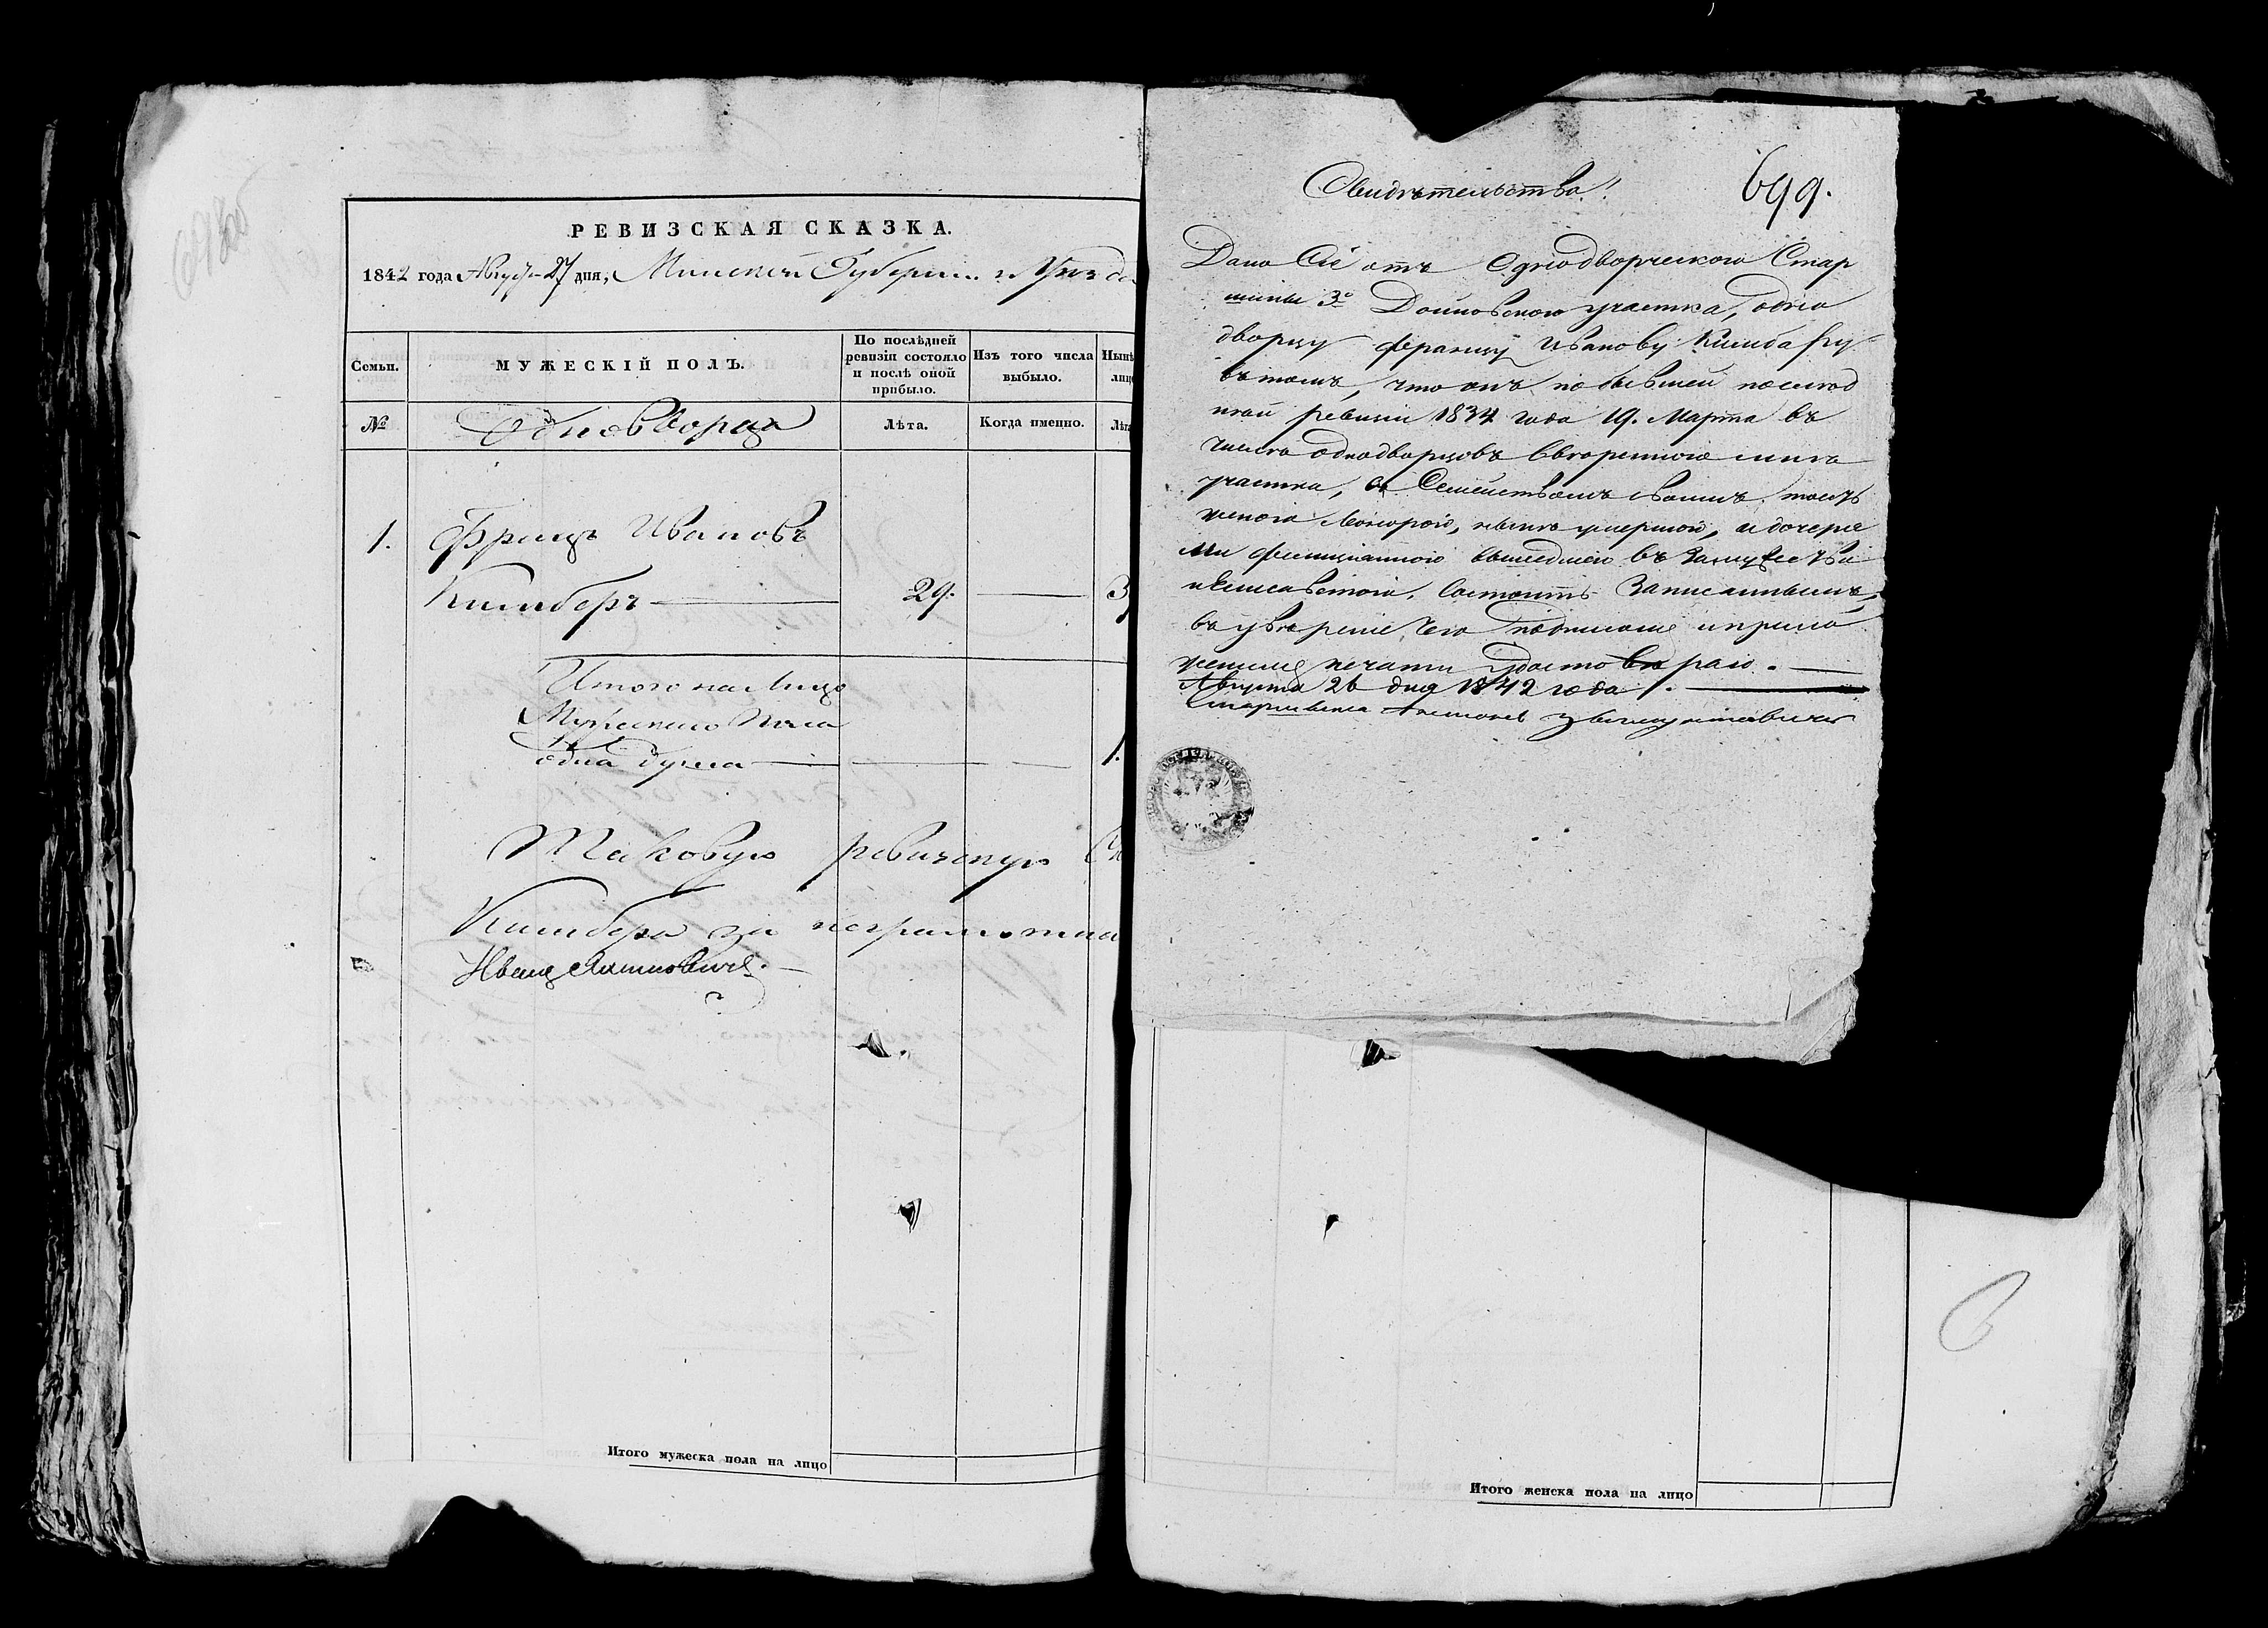 РЕВИЗСКАЯ СКАЗКА.
1842 года Август 27 дня, Минской Губернии и Уезда
Семьи.
МУЖЕСКІЙ ПОЛЪ.
По послѣдней ревизіи состояло и послѣ оной прибыло.
Изъ того числа выбыло.
Нынѣ
лицо
№
Однодворца
Лѣта.
Когда именно.
Лѣта
1. Францъ Ивановъ
Кимберъ 29. 3
Итого на Лицо
Мужеского Пола
одна душа 1.
Таковую ревизскую Ск
Кимбера за неграмотна
Ивана
Итого мужеска пола на лицо
Свидѣтельство!!
699.
Дано Сіе отъ Однодворческого Стар
шины 3го участка, одно
дворцу Францу Иванову Кимбару
въ томъ, что онъ по бывшей послѣд
ней ревизіи 1834 года 19. Марта въ
число однодворцовъ Ввѣренного мнѣ
участка, съ Семействомъ своимъ тоесть
женою нынѣ умершой, и дочеря
ми вышедшей въ замужество
и Елисаветою, Состоитъ Записаннымъ,
въ увѣреніе чего подписомъ и прило
женіемъ печати удостовѣраю.
Августа 26 дня 1842 года.
Старшина Антоній
Итого женска пола на лицо